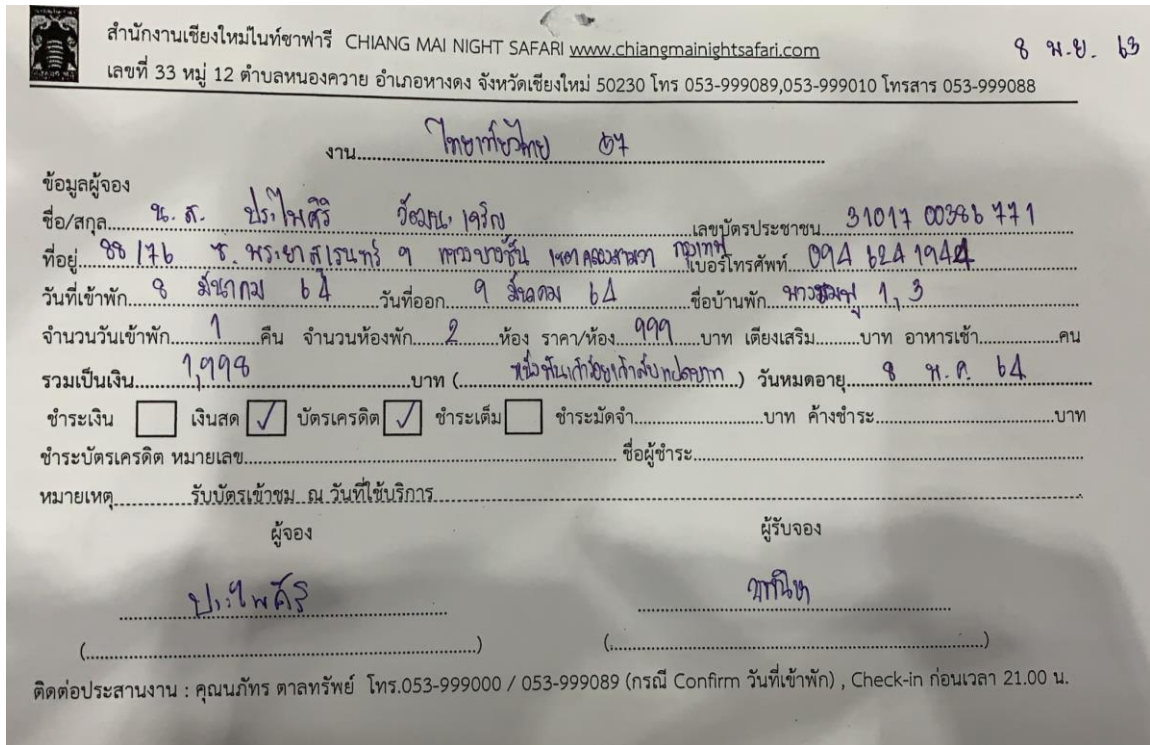 สำนักงานเชียงใหม่ไนท์ซาฟารี CHIANG MAI NIGHT SAFARI www.chiangmainightsafari.com 8 พ.ย. 63
เลขที่ 33 หมู่ 12 ตำบลหนองควาย อำเภอหางดง จังหวัดเชียงใหม่ 50230 โทร 053-999089,053-999010 โทรสาร 053-999088
งาน ไทยเที่ยวไทย 57
ข้อมูลผู้จอง
ชื่อ/สกุล น.ส. ประไพศิริ วัฒนะเจริญ เลขบัตรประชาชน 31017 00386 771
ที่อยู่ 88/76 ซ. พระยาสุเรนทร์ 9 แขวงบางชัน เขตคลองสามวา กรุงเทพ เบอร์โทรศัพท์ 094 624 1944
วันที่เข้าพัก 8 มีนาคม 64 วันที่ออก 9 มีนาคม 64 ชื่อบ้านพัก 1, 3
จำนวนวันเข้าพัก 1 คืน จำนวนห้องพัก 2 ห้อง ราคา/ห้อง 999 บาท เตียงเสริม บาท อาหารเช้า คน
รวมเป็นเงิน 1,998 บาท ( หนึ่งพันเก้าร้อยเก้าสิบแปดบาท ) วันหมดอายุ 8 พ.ค. 64
ชำระเงิน เงินสด ✓ บัตรเครดิต ✓ ชำระเต็ม ชำระมัดจำ บาท ค้างชำระ บาท
ชำระบัตรเครดิต หมายเลข ชื่อผู้ชำระ
หมายเหตุ รับบัตรเข้าชม ณ วันที่ใช้บริการ
ผู้จอง ผู้รับจอง
ประไพศิริ
(        ) (        )
ติดต่อประสานงาน : คุณนภัทร ตาลทรัพย์ โทร.053-999000 / 053-999089 (กรณี Confirm วันที่เข้าพัก) , Check-in ก่อนเวลา 21.00 น.